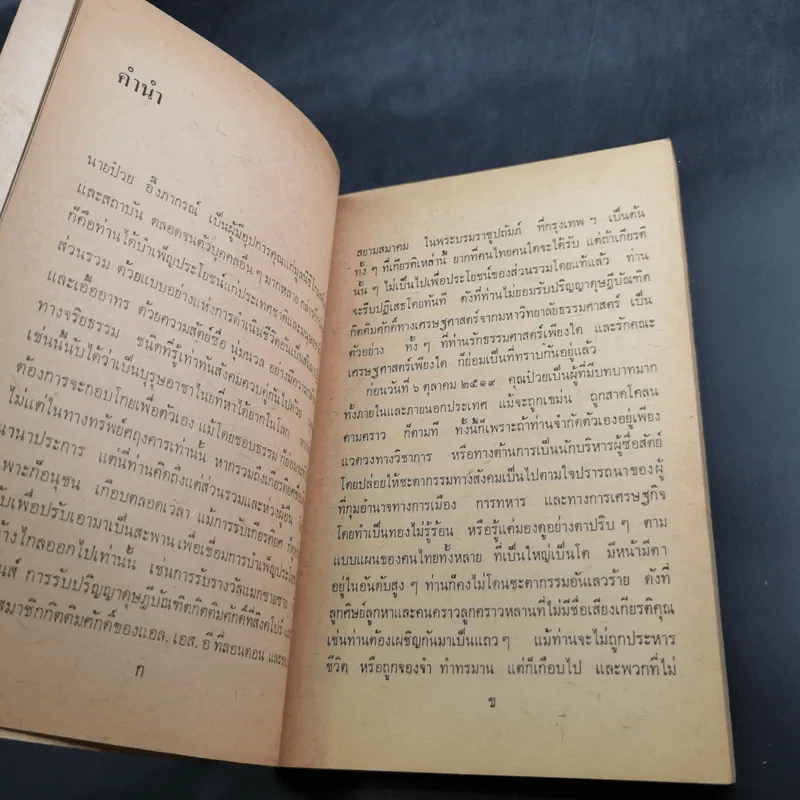 คำนำ
นายป๋วย อึ๊งภากรณ์ เป็นผู้มีอุปการคุณแก่มูลนิธิ
และสถาบัน ตลอดจนตัวบุคคลอื่น ๆ มากหลาย
ก็คือท่านได้บำเพ็ญประโยชน์แก่ประเทศชาติและ
ส่วนรวม ด้วยแบบอย่างแห่งการดำเนินชีวิตอัน
และเอื้ออาทร ด้วยความสัตย์ซื่อ นุ่มนวล อย่างมีความ
ทางจริยธรรม ชนิดที่รู้เท่าทันสังคมควบคู่กันไปด้วย
เช่นนี้นับได้ว่าเป็นบุรุษอาชาไนยที่หาได้ยากในโลก
ต้องการจะกอบโกยเพื่อตัวเอง แม้โดยชอบธรรม
ไม่แต่ในทางทรัพย์ศฤงคารเท่านั้น หากรวมถึงเกียรติยศ
นานาประการ แต่นี่ท่านคิดถึงแต่ส่วนรวมและห่วงผู้อื่น
พาะก็อนุชน เกือบตลอดเวลา แม้การรับเกียรติยศ
รับเพื่อปรับเอามาเป็นสะพาน เพื่อเชื่อมการบำเพ็ญ
ไกลออกไปเท่านั้น เช่นการรับรางวัลแมกซายซาย
นส์ การรับปริญญาดุษฎีบัณฑิตกิตติมศักดิ์ที่สิงคโปร์
สมาชิกกิตติมศักดิ์ของแอล. เอส. อี ที่ลอนดอน และของ
ก
สยามสมาคม ในพระบรมราชูปถัมภ์ ที่กรุงเทพ ฯ เป็นต้น
ทั้ง ๆ ที่เกียรติเหล่านี้ ยากที่คนไทยคนใดจะได้รับ แต่ถ้าเกียรติ
นั้น ๆ ไม่เป็นไปเพื่อประโยชน์ของส่วนรวมโดยแท้แล้ว ท่าน
จะรีบปฏิเสธโดยทันที ดังที่ท่านไม่ยอมรับปริญญาดุษฎีบัณฑิต
กิตติมศักดิ์ทางเศรษฐศาสตร์จากมหาวิทยาลัยธรรมศาสตร์ เป็น
ตัวอย่าง ทั้ง ๆ ที่ท่านรักธรรมศาสตร์เพียงใด และรักคณะ
เศรษฐศาสตร์เพียงใด ก็ย่อมเป็นที่ทราบกันอยู่แล้ว
ก่อนวันที่ ๖ ตุลาคม ๒๕๑๙ คุณป๋วยเป็นผู้ที่มีบทบาทมาก
ทั้งภายในและภายนอกประเทศ แม้จะถูกเขม่น ถูกสาดโคลน
ตามคราว ก็ตามที ทั้งนี้ก็เพราะถ้าท่านจำกัดตัวเองอยู่เพียง
แวดวงทางวิชาการ หรือทางด้านการเป็นนักบริหารผู้ซื่อสัตย์
โดยปล่อยให้ชะตากรรมทางสังคมเป็นไปตามใจปรารถนาของผู้
ที่กุมอำนาจทางการเมือง การทหาร และทางการเศรษฐกิจ
โดยทำเป็นทองไม่รู้ร้อน หรือรู้แต่มองดูอย่างตาปริบ ๆ ตาม
แบบแผนของคนไทยทั้งหลาย ที่เป็นใหญ่เป็นโต มีหน้ามีตา
อยู่ในอันดับสูง ๆ ท่านก็คงไม่โดนชะตากรรมอันเลวร้าย ดังที่
ลูกศิษย์ลูกหาและคนคราวลูกคราวหลานที่ไม่มีชื่อเสียงเกียรติคุณ
เช่นท่านต้องเผชิญกันมาเป็นแถว ๆ แม้ท่านจะไม่ถูกประหาร
ชีวิต หรือถูกจองจำ ทำทรมาน แต่ก็เกือบไป และพวกที่ไม่
ข